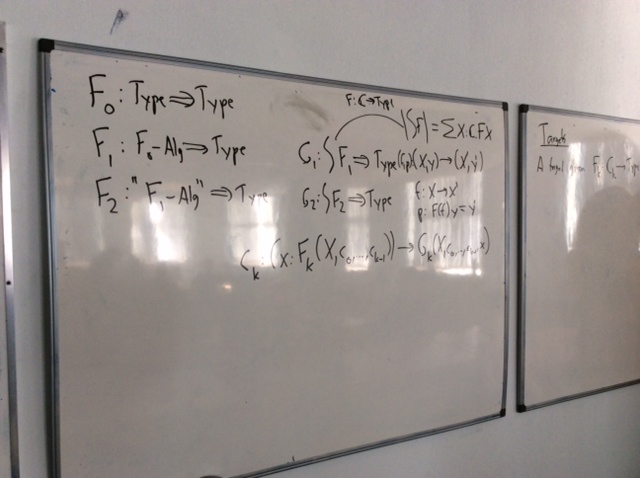 F₀ : Type ⇒ Type
F₁ : F₀-Alg ⇒ Type
F₂ : "F₁-Alg" ⇒ Type
F : C → Type
|∫F| = Σ X:C. F X
G₁ : ∫F₁ ⇒ Type (f,p) (X,y) → (X',y')
G₂ : ∫F₂ ⇒ Type
f : X → X'
p : F(f) y = y'
c_k : (x : F_k (X, c₀, ..., c_{k-1})) → G_k (X, c₀, ..., x)
A given F : C → Type